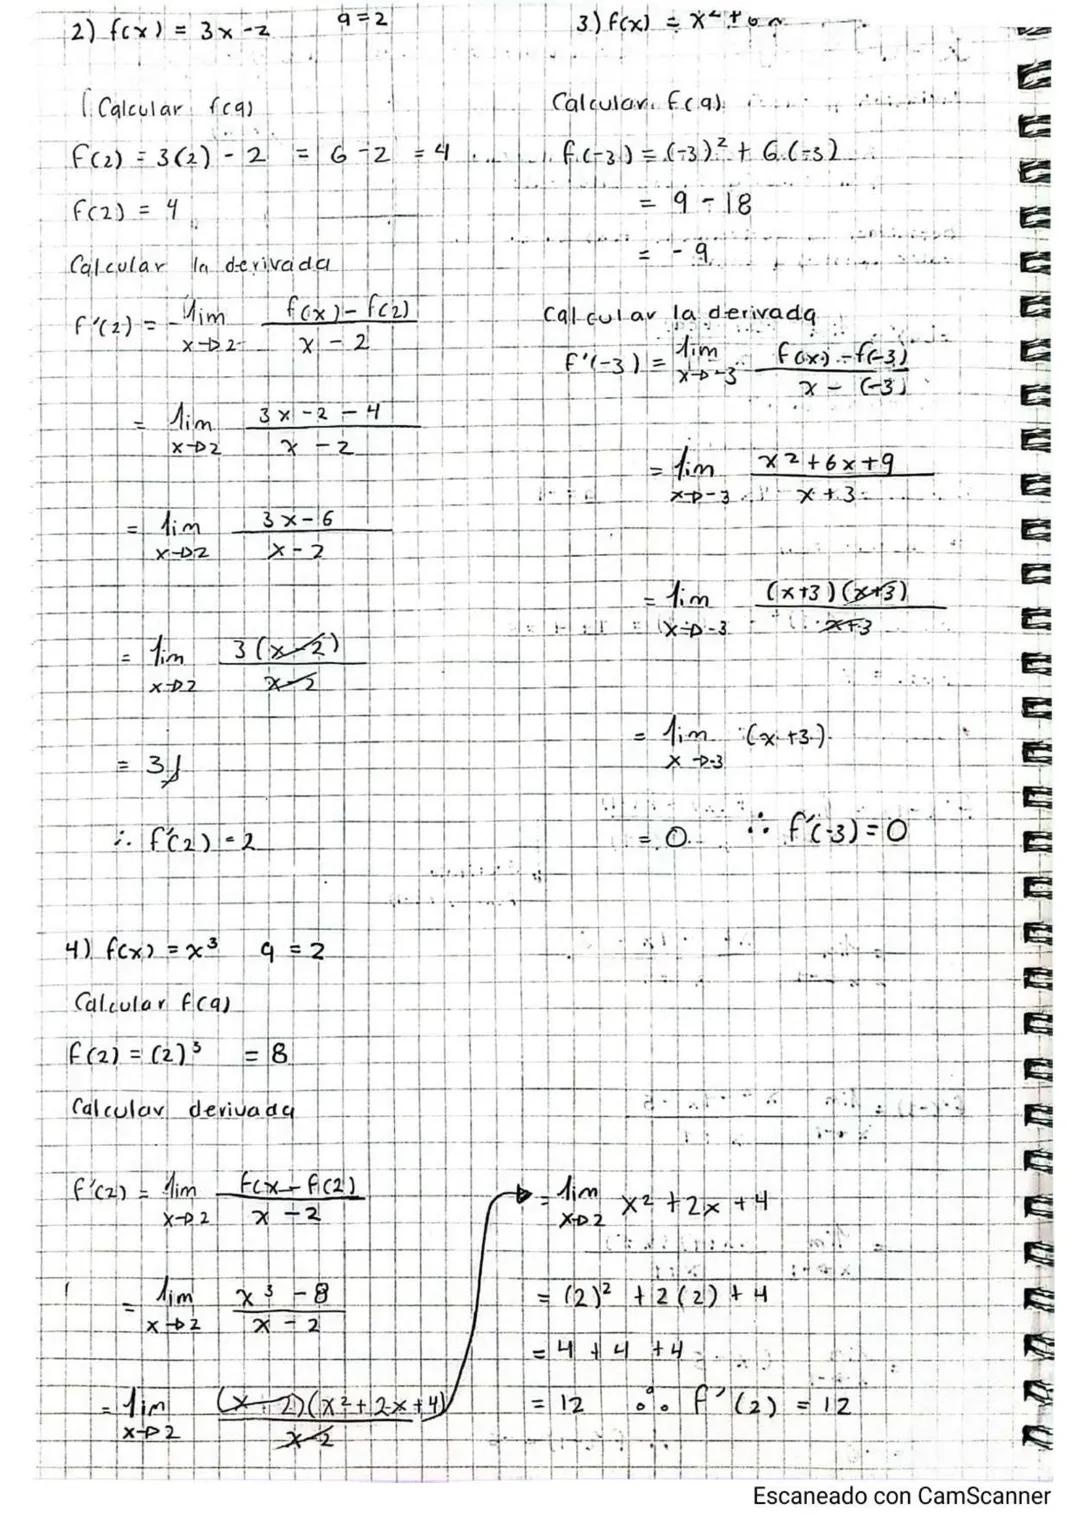 2) f(x) = 3x - 2    a = 2
Calcular f(a)
f(2) = 3(2) - 2 = 6 - 2 = 4
f(2) = 4
Calcular la derivada
f'(2) = lim x→2 f(x) - f(2) / x - 2
= lim x→2 3x - 2 - 4 / x - 2
= lim x→2 3x - 6 / x - 2
= lim x→2 3(x - 2) / x - 2
= 3
∴ f'(2) = 2
3) f(x) = x² + 6
Calcular f(a)
f(-3) = (-3)² + 6(-3)
= 9 - 18
= - 9
Calcular la derivada
f'(-3) = lim x→-3 f(x) - f(-3) / x - (-3)
= lim x→-3 x2 + 6x + 9 / x + 3
= lim x→-3 (x+3)(x+3) / x+3
= lim x→-3 (x+3)
= 0 ∴ f'(-3) = 0
4) f(x) = x³    a = 2
Calcular f(a)
f(2) = (2)³ = 8
Calcular derivada
f'(2) = lim x→2 f(x - f(2) / x - 2
= lim x→2 x³ - 8 / x - 2
= lim x→2 (x - 2)(x² + 2x + 4) / x - 2
= lim x→2 x² + 2x + 4
= (2)² + 2(2) + 4
= 4 + 4 + 4
= 12 ∴ f'(2) = 12
Escaneado con CamScanner